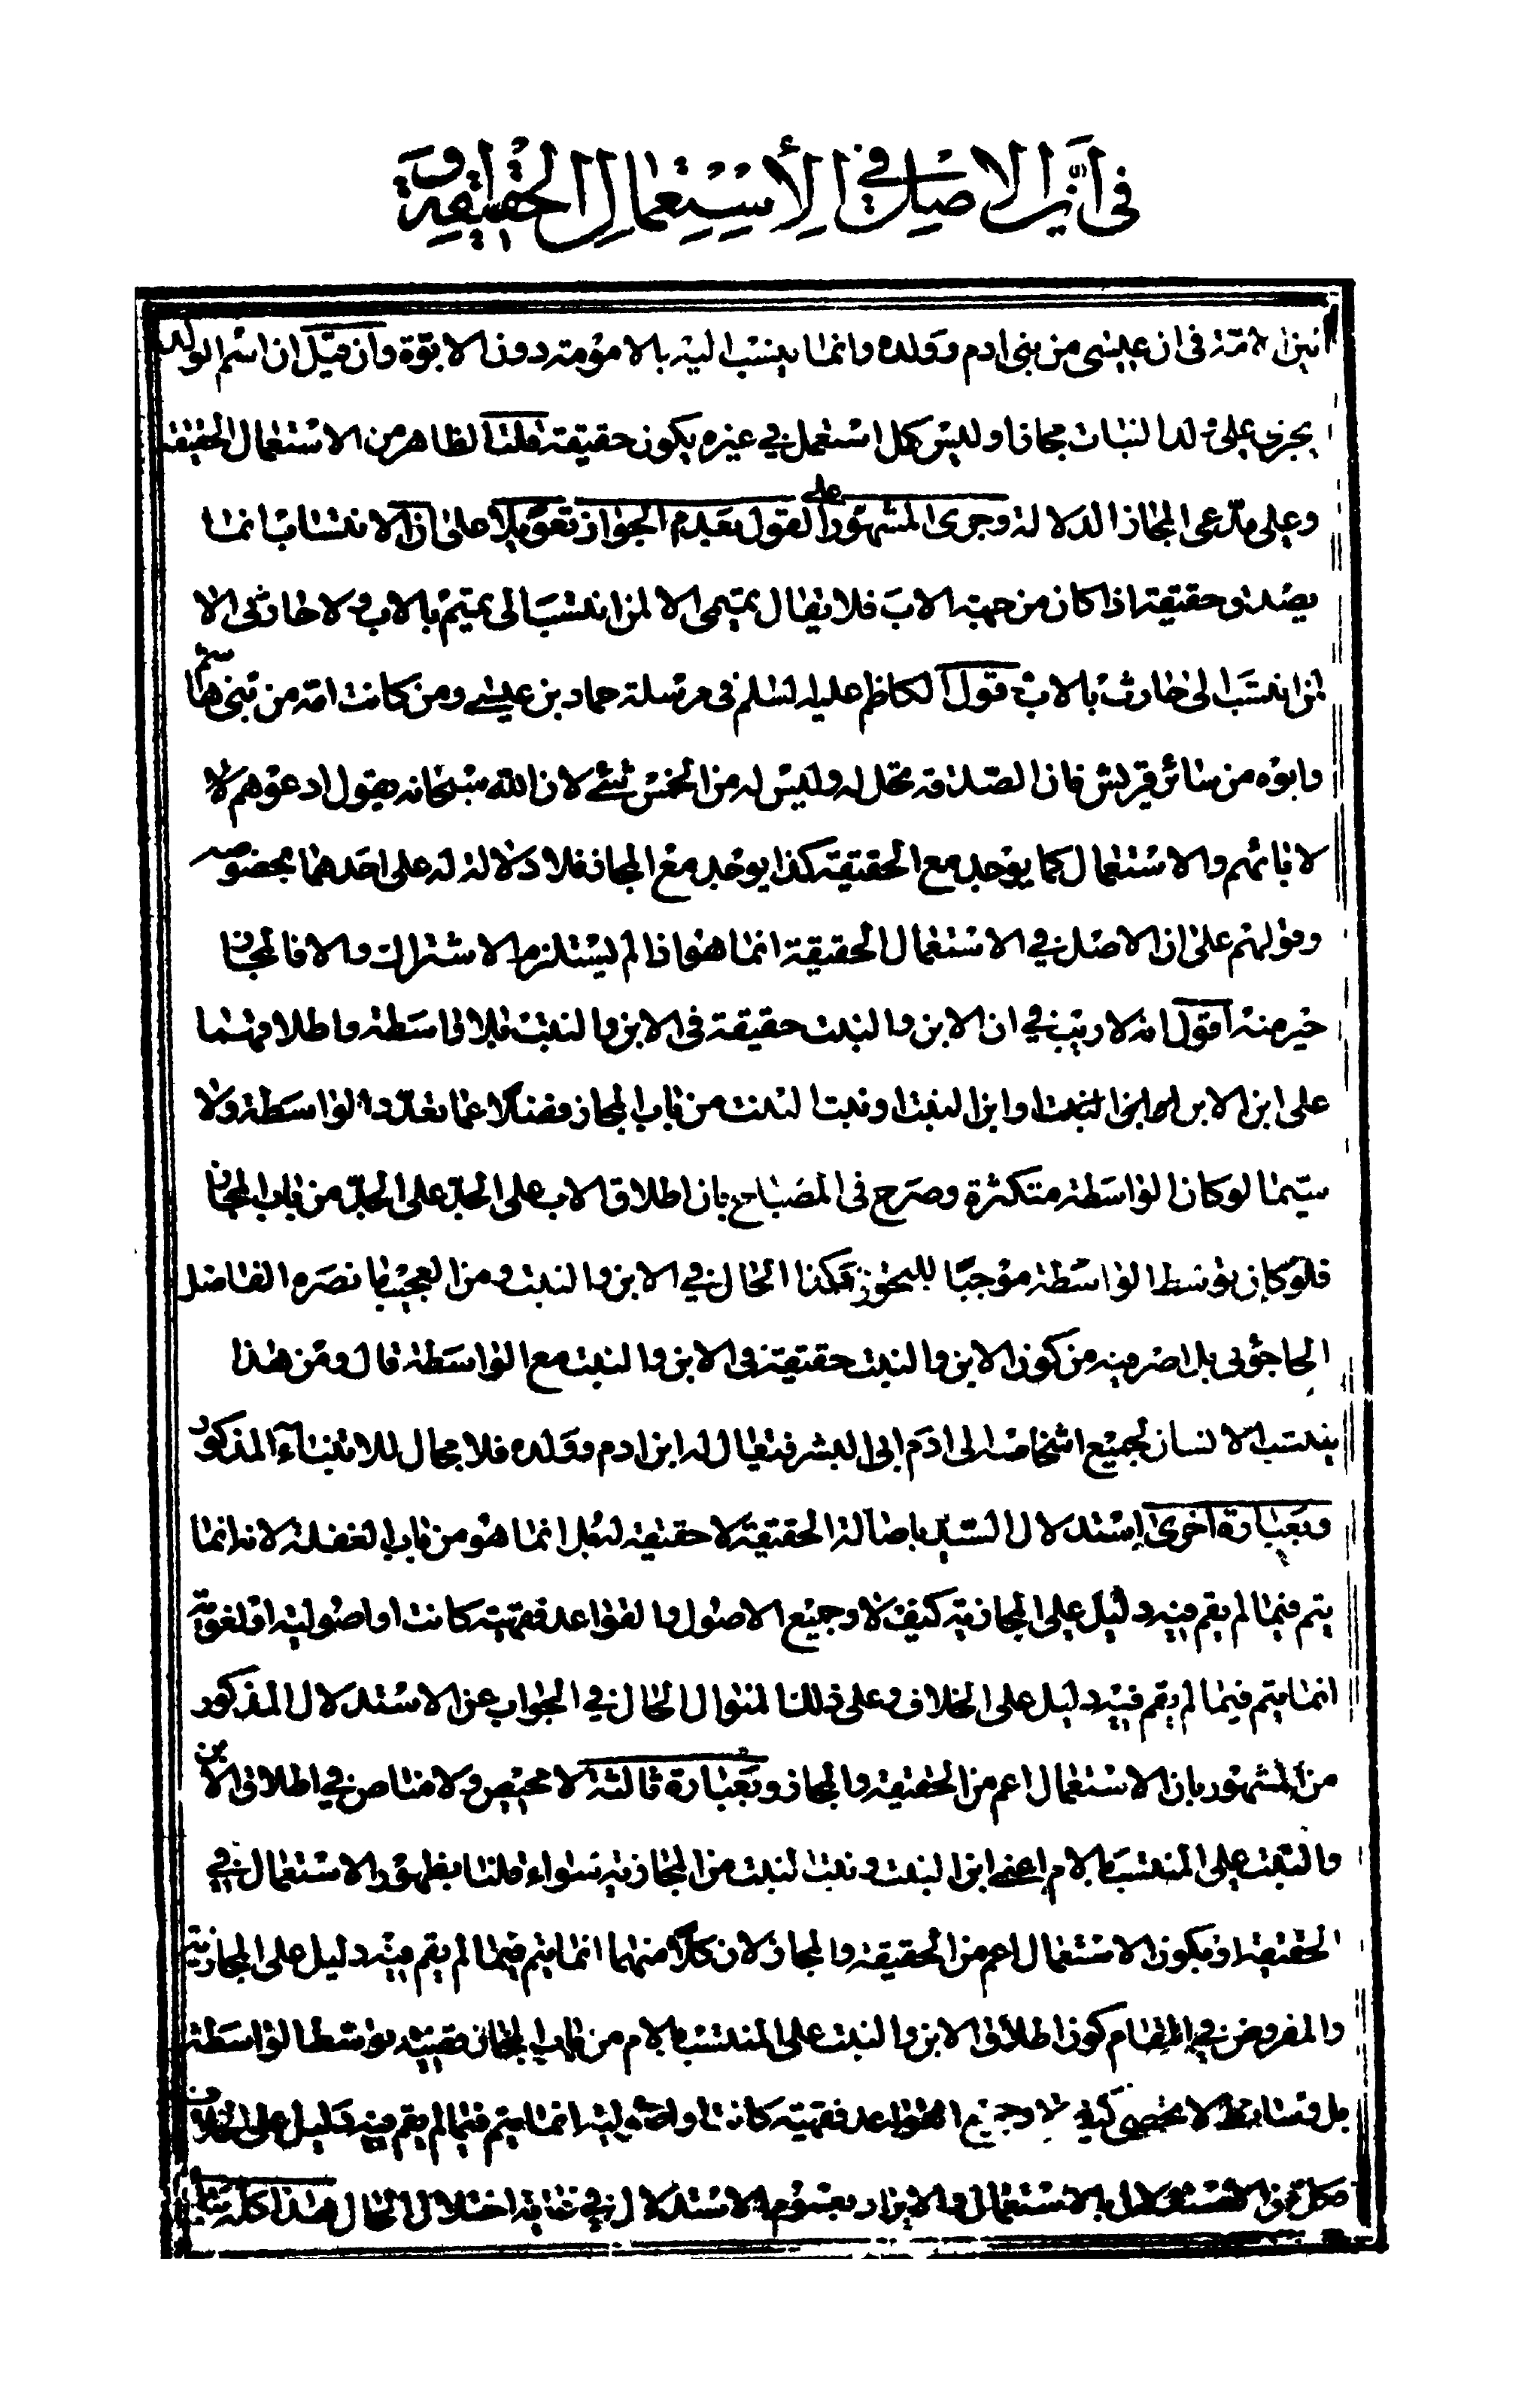 في أن الاصل في الاستعمال الحقيقة
بين الامة في ان عيسى من بني ادم وولده وانما ينسب اليه بالامومته دون الابوّة وان قيل ان اسم الولد
يجري على ولد البنات مجازا وليس كل استعمل في غيره يكون حقيقة قلنا الظاهر من الاستعمال الحقيقة
وعلى مدّعي المجاز الدلالة وجرى المشهور على القول بعدم الجواز تعويلا على ان الانتساب انما
يصدق حقيقة اذا كان من جهة الاب فلا يقال تميمي الا لمن انتسب الى تميم بالاب ولا حارثي الا
لمن انتسب الى حارث بالاب قول الكاظم عليه السلم في مرسلة حماد بن عيسى ومن كانت امّه من بني هاشم
وابوه من سائر قريش فان الصدقة تحل له وليس له من الخمس شئ لان الله سبحانه يقول ادعوهم لا
لابائهم والاستعمال كما يوجد مع الحقيقة كذا يوجد مع المجاز فلا دلالة له على احدهما بخصوصه
وقولهم على ان الاصل في الاستعمال الحقيقة انما هو اذا لم يستلزم الاشتراك والا فالمجاز
خير منه اقول انه لا ريب في ان الابن والبنت حقيقة في الابن والبنت بلا واسطة واطلاقهما
على ابن الابن او ابن البنت او ابن البنت او بنت البنت من باب المجاز فضلا عما تعدّد الواسطة ولا
سيّما لو كان الواسطة متكثرة وصرح في المصباح بان اطلاق الاب على الجدّ على الجدّ من باب المجاز
فلو كان توسط الواسطة موجبًا للتجوز فكذا الحال في الابن والبنت ومن العجيب ما نصره الفاضل
الخاجوئي بل اصر فيه من كون الابن والبنت حقيقة في الابن والبنت مع الواسطة قال ومن هذا
ينتسب الانسان بجميع اشخاصه الى ادم ابي البشر فيقال له ابن ادم وولده فلا مجال للابتناء المذكور
وبعبارة اخرى استدلال السيّد باصالة الحقيقة لا حقيقة له بل انما هو من باب الغفلة لانه انما
يتم فيما لم يقم فيه دليل على المجازية كيف لا وجميع الاصول والقواعد فقهية كانت او اصولية او لغوية
انما يتم فيما لم يقم فيه دليل على الخلاف وعلى ذلك المنوال الحال في الجواب عن الاستدلال المذكور
من المشهور بان الاستعمال اعم من الحقيقة والمجاز وبعبارة ثالثة لا محيص ولا مناص في اطلاق الابن
والبنت على المنتسب بالام اعني ابن البنت وبنت البنت من المجازية سواء قلنا بظهور الاستعمال في
الحقيقة او بكون الاستعمال اعم من الحقيقة والمجاز لان كلّا منهما انما يتم فيما لم يقم فيه دليل على المجازية
والمفروض في المقام كون اطلاق الابن والبنت على المنتسب بالام من باب المجاز بتوسط الواسطة
بل وسائط لا تحصى كيف لا وجميع القواعد فقهية كانت او اصولية انما يتم فيما لم يقم فيه دليل على الخلاف
الاستدلال بالاستعمال والايراد بعموم الاستدلال في غاية اختلال الحال هذا كله